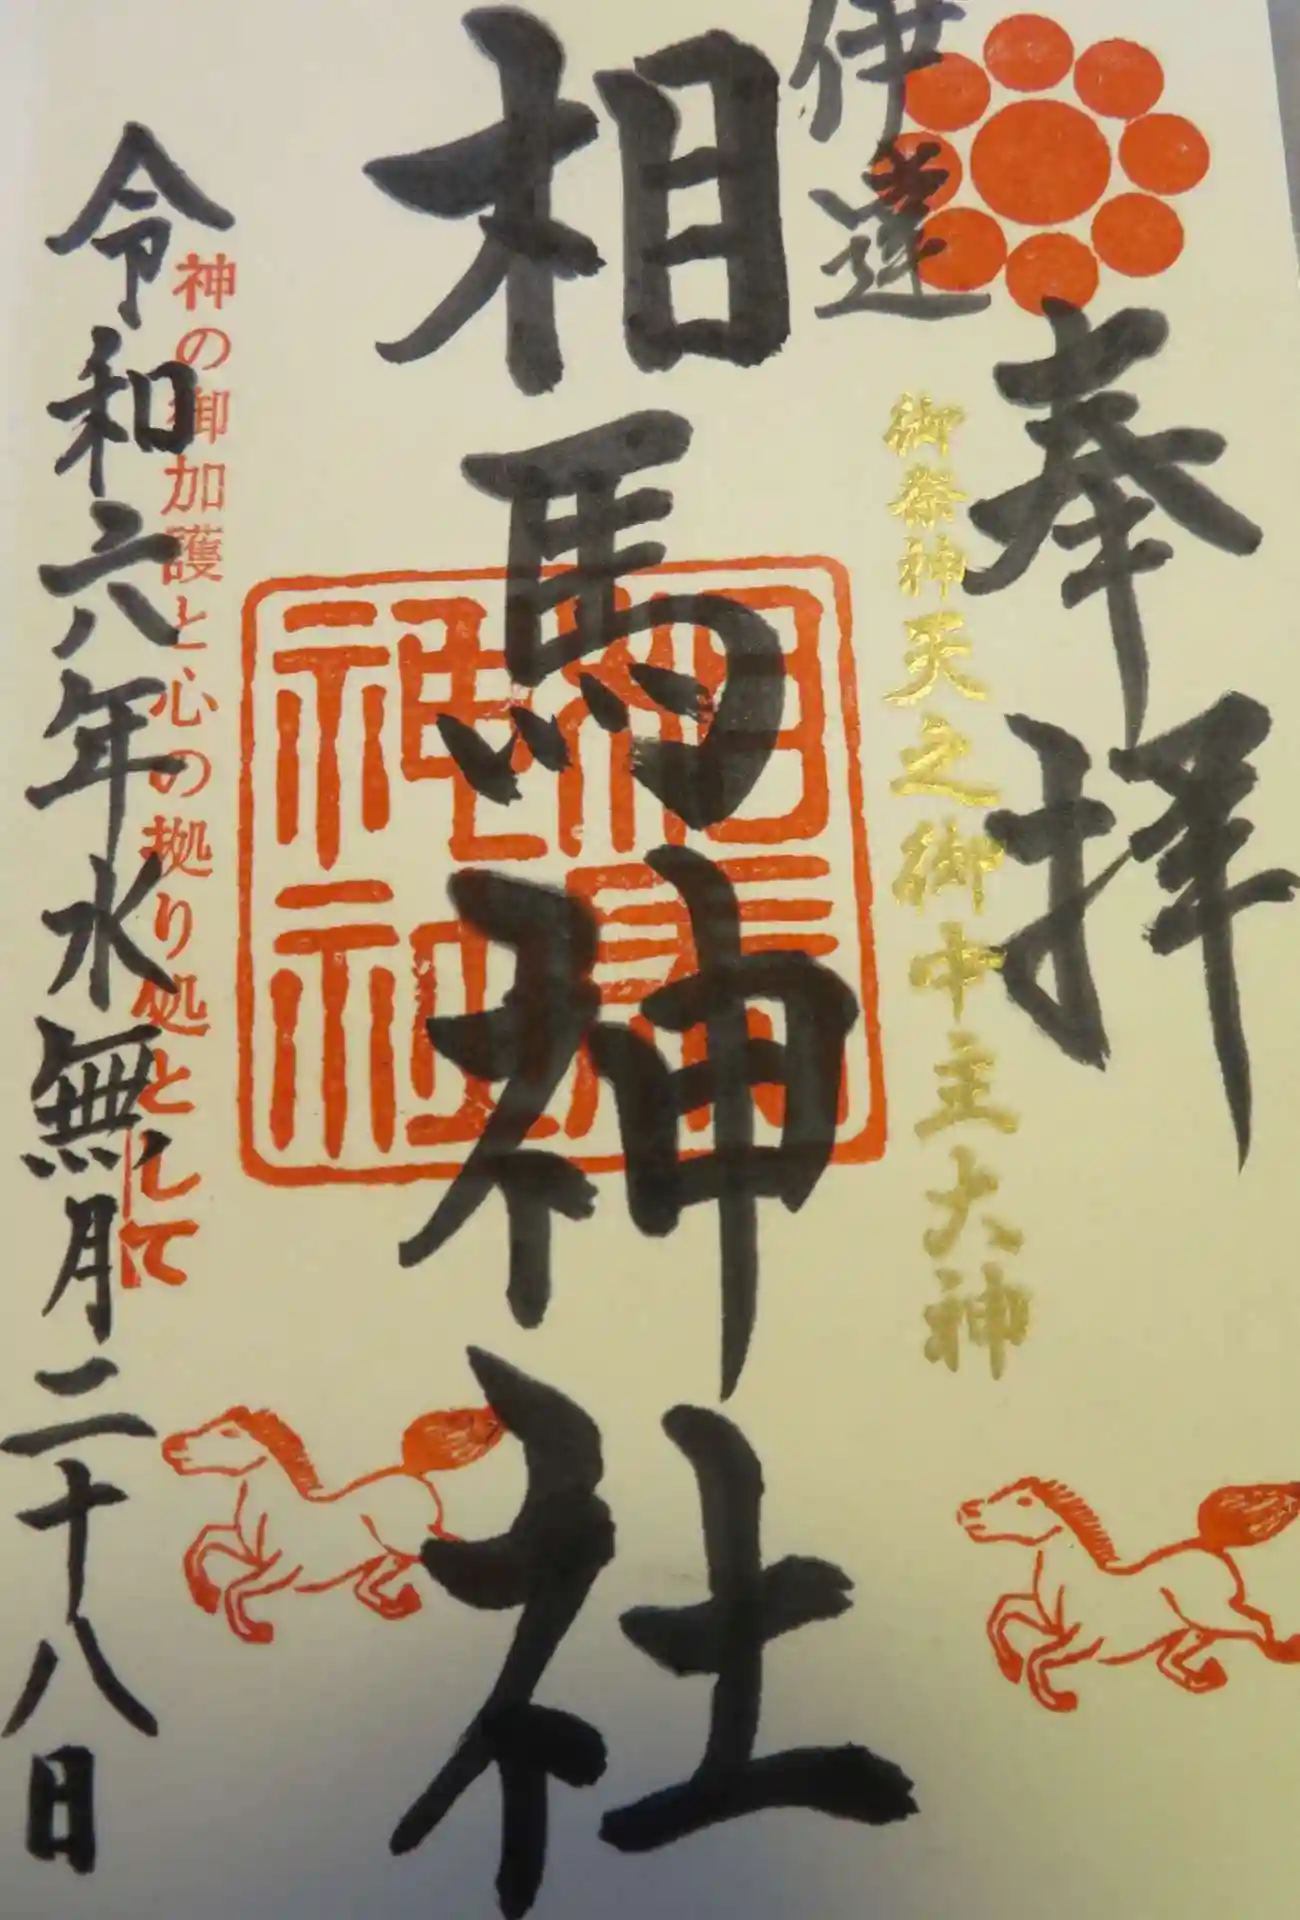 奉拝
御祭神天之御中主大神
伊達
相馬神社
相馬神社
神の御加護と心の拠り処として
令和六年水無月二十八日